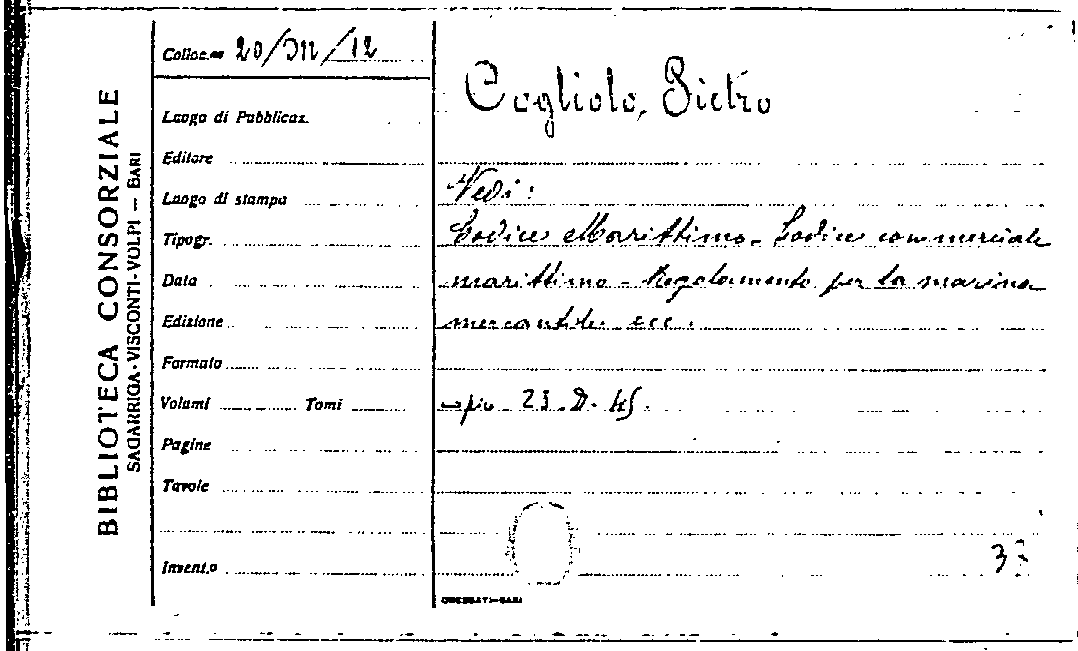 BIBLIOTECA CONSORZIALE
SAGARRIGA-VISCONTI-VOLPI — BARI
Colloc.ne 20/
Luogo di Pubblicaz.
Editore
Luogo di stampa
Tipogr.
Data
Edizione
Formato
Volumi Tomi
Pagine
Tavole
Invent.o
Cogliolo, Pietro
Vedi:
Codice Marittimo - Codice commerciale
marittimo - Regolamento per la marina
mercantile ecc.
23.